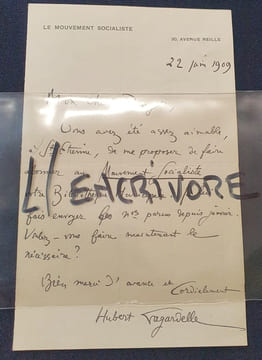 LE MOUVEMENT SOCIALISTE
30, AVENUE REILLE
22 juin 1909
Vous avez été assez aimable,
à St Etienne, de me proposer de faire
abonner au Mouvement Socialiste
L'ENCRIVORE
fais envoyer les nos parus depuis janvier.
Voulez-vous faire maintenant le
nécessaire?
Bien merci d'avance et Cordialement
Hubert Lagardelle